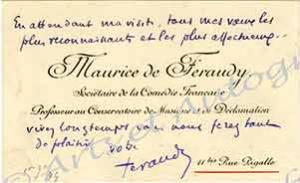 En attendant ma visite, tous mes vœux les
plus reconnaissants et les plus affectueux..
Maurice de Feraudy
Sociétaire de la Comédie Française
Professeur au Conservatoire de Musique et de Déclamation
vivez longtemps vous nous ferez tant
de plaisir votre
Feraudy
11 bis Rue Pigalle